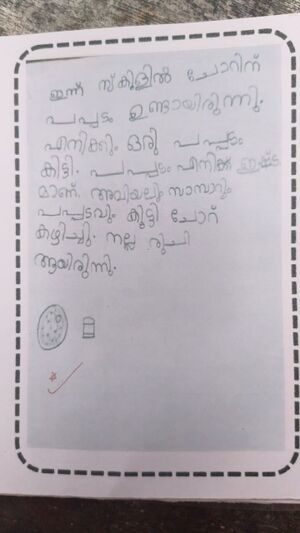 ഇന്ന് സ്കൂളിൽ ചോറിന്
പപ്പടം ഉണ്ടായിരുന്നു.
എനിക്കും ഒരു പപ്പടം
കിട്ടി. പപ്പടം എനിക്ക് ഇഷ്ട
മാണ്. അവിയലും സാമ്പാറും
പപ്പടവും കൂട്ടി ചോറ്
കഴിച്ചു. നല്ല രുചി
ആയിരുന്നു.